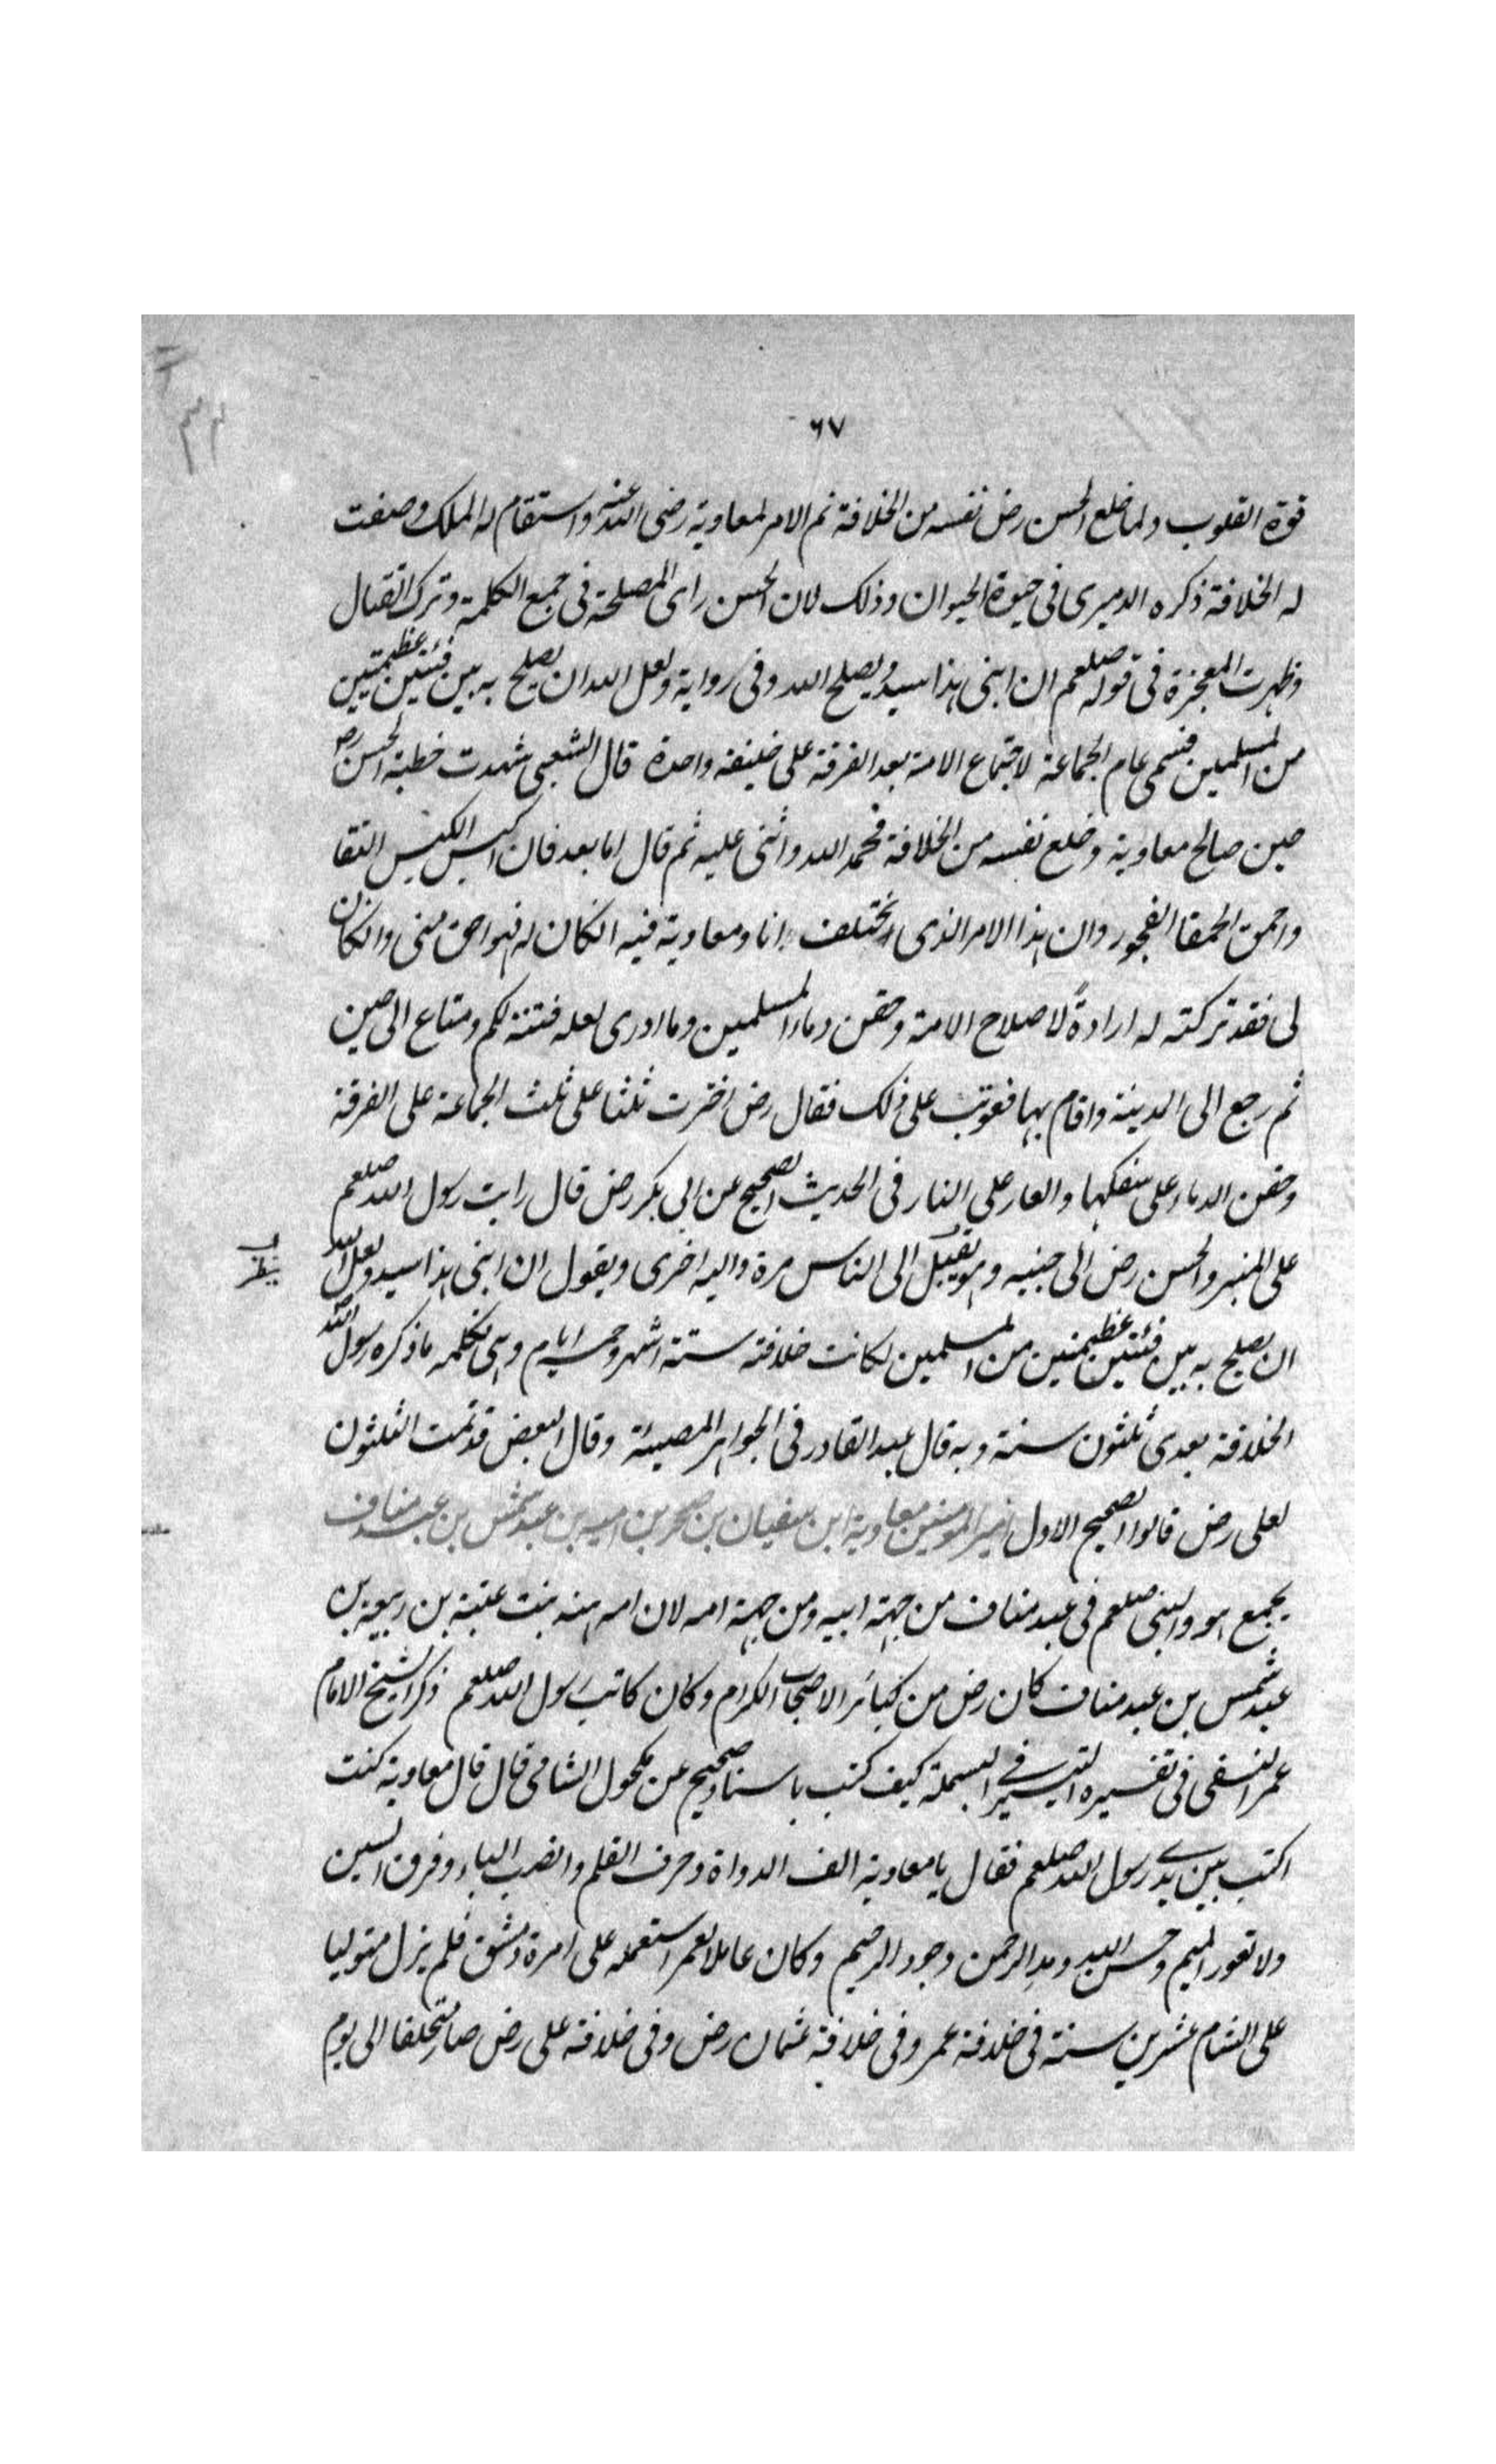 ٦٧
٣٣
قوة القلوب ولما خلع الحسن رض نفسه من الخلافة تم الامر لمعاوية رضى الله عنه واستقام له الملك وصفت
له الخلافة ذكره الدميرى فى حيوة الحيوان وذلك لان الحسن راى المصلحة فى جمع الكلمة وترك القتال
وظهرت المعجزة فى قوله صلعم ان ابنى هذا سيد ويصلح الله وفى رواية ولعل الله ان يصلح به بين فئتين عظيمتين
من المسلمين فسمى عام الجماعة لاجتماع الامة بعد الفرقة على خليفة واحدة قال الشعبى شهدت خطبة الحسن رض
حين صالح معاوية وخلع نفسه من الخلافة فحمد الله واثنى عليه ثم قال اما بعد فان اكيس الكيس التقا
واحمق الحمقا الفجور وان هذا الامر الذى اختلف انا ومعاوية فيه انكان له فهو احق منى وانكان
لى فقد تركته له ارادةً لاصلاح الامة وحقن دماء المسلمين وما ادرى لعله فتنة لكم ومتاع الى حين
ثم رجع الى المدينة واقام بها فعوتب على ذلك فقال رض اخترت ثلثا على ثلث الجماعة على الفرقة
وحقن الدماء على سفكها والعار على النار فى الحديث الصحيح عن ابى بكر رض قال رايت رسول الله صلعم
على المنبر والحسن رض الى جنبه وهو يقبل الى الناس مرة واليه اخرى ويقول ان ابنى هذا سيد ولعل الله
ان يصلح به بين فئتين عظيمتين من المسلمين لكانت خلافته ستة اشهر وخمسة ايام وهى تكلمه ما ذكره رسول الله
الخلافة بعدى ثلثون سنة وبه قال عبد القادر فى الجواهر المضيئة وقال البعض قد تمت الثلثون
لعلى رض قالوا الصحيح الاول امير المؤمنين معاوية ابن سفيان بن صخر بن اميه بن عبد شمس بن عبد مناف
يجمع هو والنبى صلعم فى عبد مناف من جهة ابيه ومن جهة امه لان امه هنه بنت عتبة بن ربيعة بن
عبد شمس بن عبد مناف كان رض من كبائر الاصحاب الكرام وكان كاتب رسول الله صلعم ذكر الشيخ الامام
عمر النسفى فى تفسيره التيسير فى البسملة كيف كتب باسناد صحيح عن مكحول الشامى قال قال معاوية كنت
اكتب بين يدى رسول الله صلعم فقال يا معاوية الف الدواة وحرف القلم وانصب الباء وفرق السين
ولا تعور الميم وحسن الله ومد الرحمن وجود الرحيم وكان عاملا لعمر استعمله على امرة دمشق فلم يزل متوليا
على الشام عشرين سنة فى خلافة عمر وفى خلافة عثمان رض وفى خلافة على رض صار متخلفا الى يوم